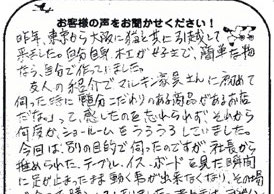 お客様の声をお聞かせください！
昨年、東京から大阪に猫と共に引越して
来ました。自分自身木工が好きで、簡単な物
なら、自分で作っていました。
友人の紹介でマルキン家具さんに初めて
伺った際に随分こだわりのある商品があるお店
だな。」って、感じたのを忘れられず、それから
何度か、ショールームをうろうろしていました。
今回は、別の目的で伺ったのですが、社長から
進められた、テーブル、イス、ボードを見た瞬間
に足が止ったまま動く事が出来なくなり、その場